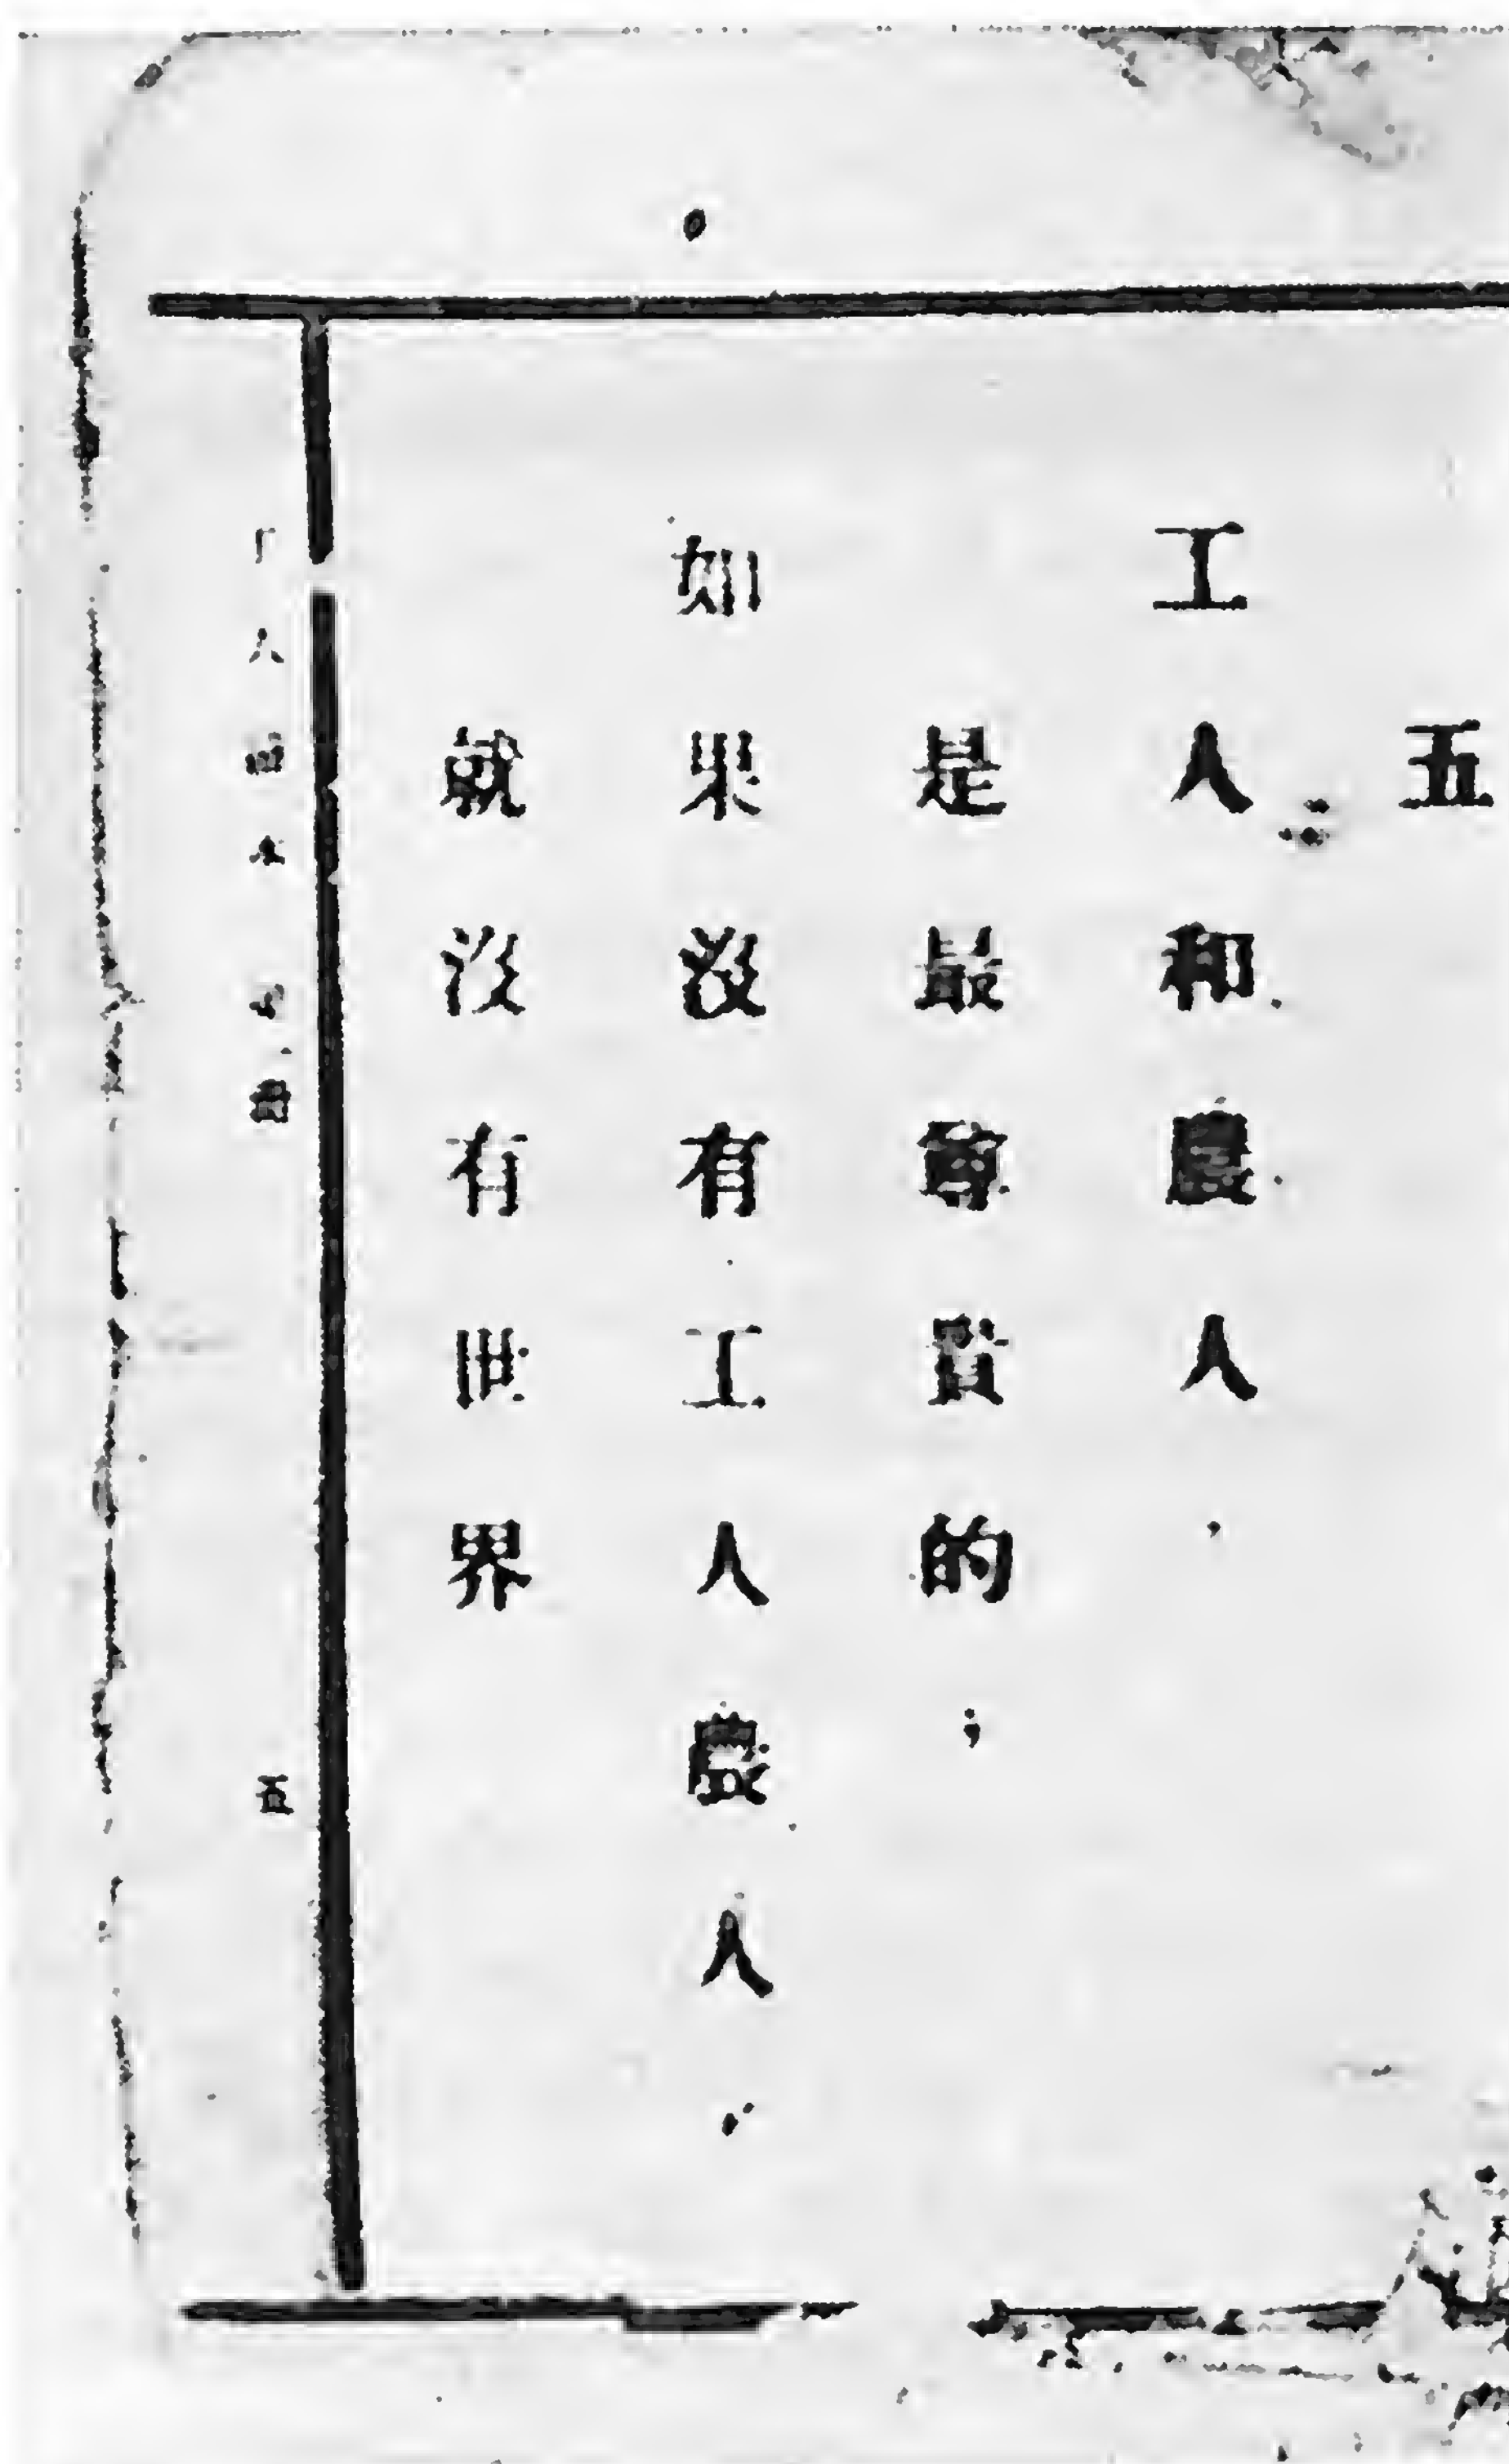 五
工人和農人，
是最尊貴的；
如果沒有工人農人，
就沒有世界
五